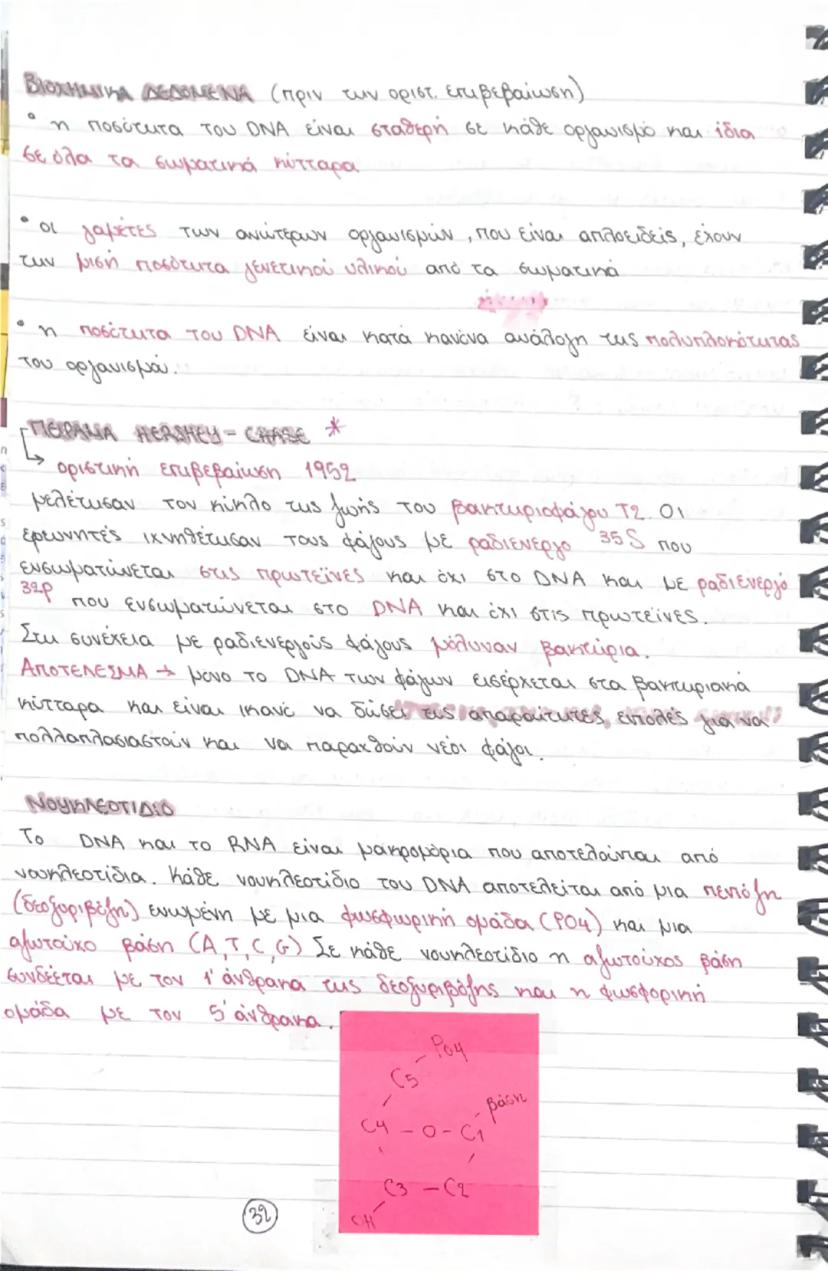 ΒΙΟΧΗΜΙΚΑ ΔΕΔΟΜΕΝΑ (πριν την οριστ. επιβεβαίωση)
• η ποσότητα του DNA είναι σταθερή σε κάθε οργανισμό και ίδια
σε όλα τα σωματικά κύτταρα
• οι γαμέτες των ανώτερων οργανισμών, που είναι απλοειδείς, έχουν
την μισή ποσότητα γενετικού υλικού από τα σωματικά
• η ποσότητα του DNA είναι κατά κανόνα ανάλογη της πολυπλοκότητας
του οργανισμού.
ΠΕΙΡΑΜΑ HERSHEY - CHASE *
↳ οριστική επιβεβαίωση 1952
μελέτησαν τον κύκλο της ζωής του βακτηριοφάγου Τ2. Οι
ερευνητές ιχνηθέτησαν τους φάγους με ραδιενεργό 35S που
ενσωματώνεται στις πρωτεΐνες και όχι στο DNA και με ραδιενεργό
32P που ενσωματώνεται στο DNA και όχι στις πρωτεΐνες.
Στη συνέχεια με ραδιενεργούς φάγους μόλυναν βακτήρια.
ΑΠΟΤΕΛΕΣΜΑ → μόνο το DNA των φάγων εισέρχεται στα βακτηριακά
κύτταρα και είναι ικανό να δώσει τις απαραίτητες εντολές για να
πολλαπλασιαστούν και να παραχθούν νέοι φάγοι.
ΝΟΥΚΛΕΟΤΙΔΙΟ
Το DNA και το RNA είναι μακρομόρια που αποτελούνται από
νουκλεοτίδια. Κάθε νουκλεοτίδιο του DNA αποτελείται από μια πεντόζη
(δεοξυριβόζη) ενωμένη με μια φωσφωρική ομάδα (PO4) και μια
αζωτούχο βάση (A, T, C, G) Σε κάθε νουκλεοτίδιο η αζωτούχος βάση
συνδέεται με τον 1' άνθρακα της δεοξυριβόζης και η φωσφορική
ομάδα με τον 5' άνθρακα.
PO4
C5
βάση
C4 - O - C1
C3 - C2
OH
32